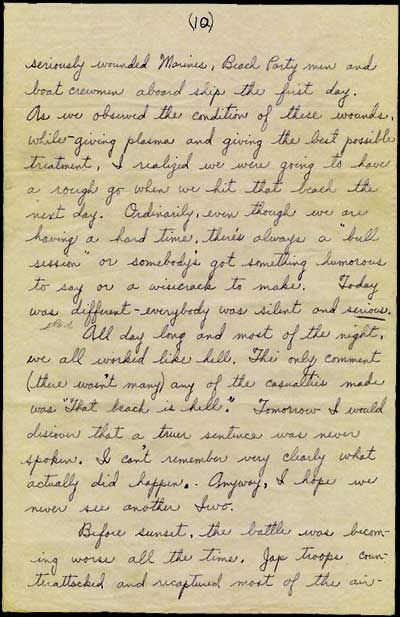 (10)
seriously wounded Marines, Beach Party men and
boat crewmen aboard ship the first day.
As we observed the condition of these wounds,
while giving plasma and giving the best possible
treatment, I realized we were going to have
a rough go when we hit that beach the
next day. Ordinarily, even though we are
having a hard time, there's always a "bull
session" or somebody's got something humorous
to say or a wisecrack to make. Today
was different - everybody was silent and serious.
All day long and most of the night,
we all worked like hell. The only comment
(there wasn't many) any of the casualties made
was "That beach is hell." Tomorrow I would
discover that a truer sentence was never
spoken. I can't remember very clearly what
actually did happen. Anyway, I hope we
never see another Iwo.
Before sunset, the battle was becom-
ing worse all the time. Jap troops coun-
terattacked and recaptured most of the air-